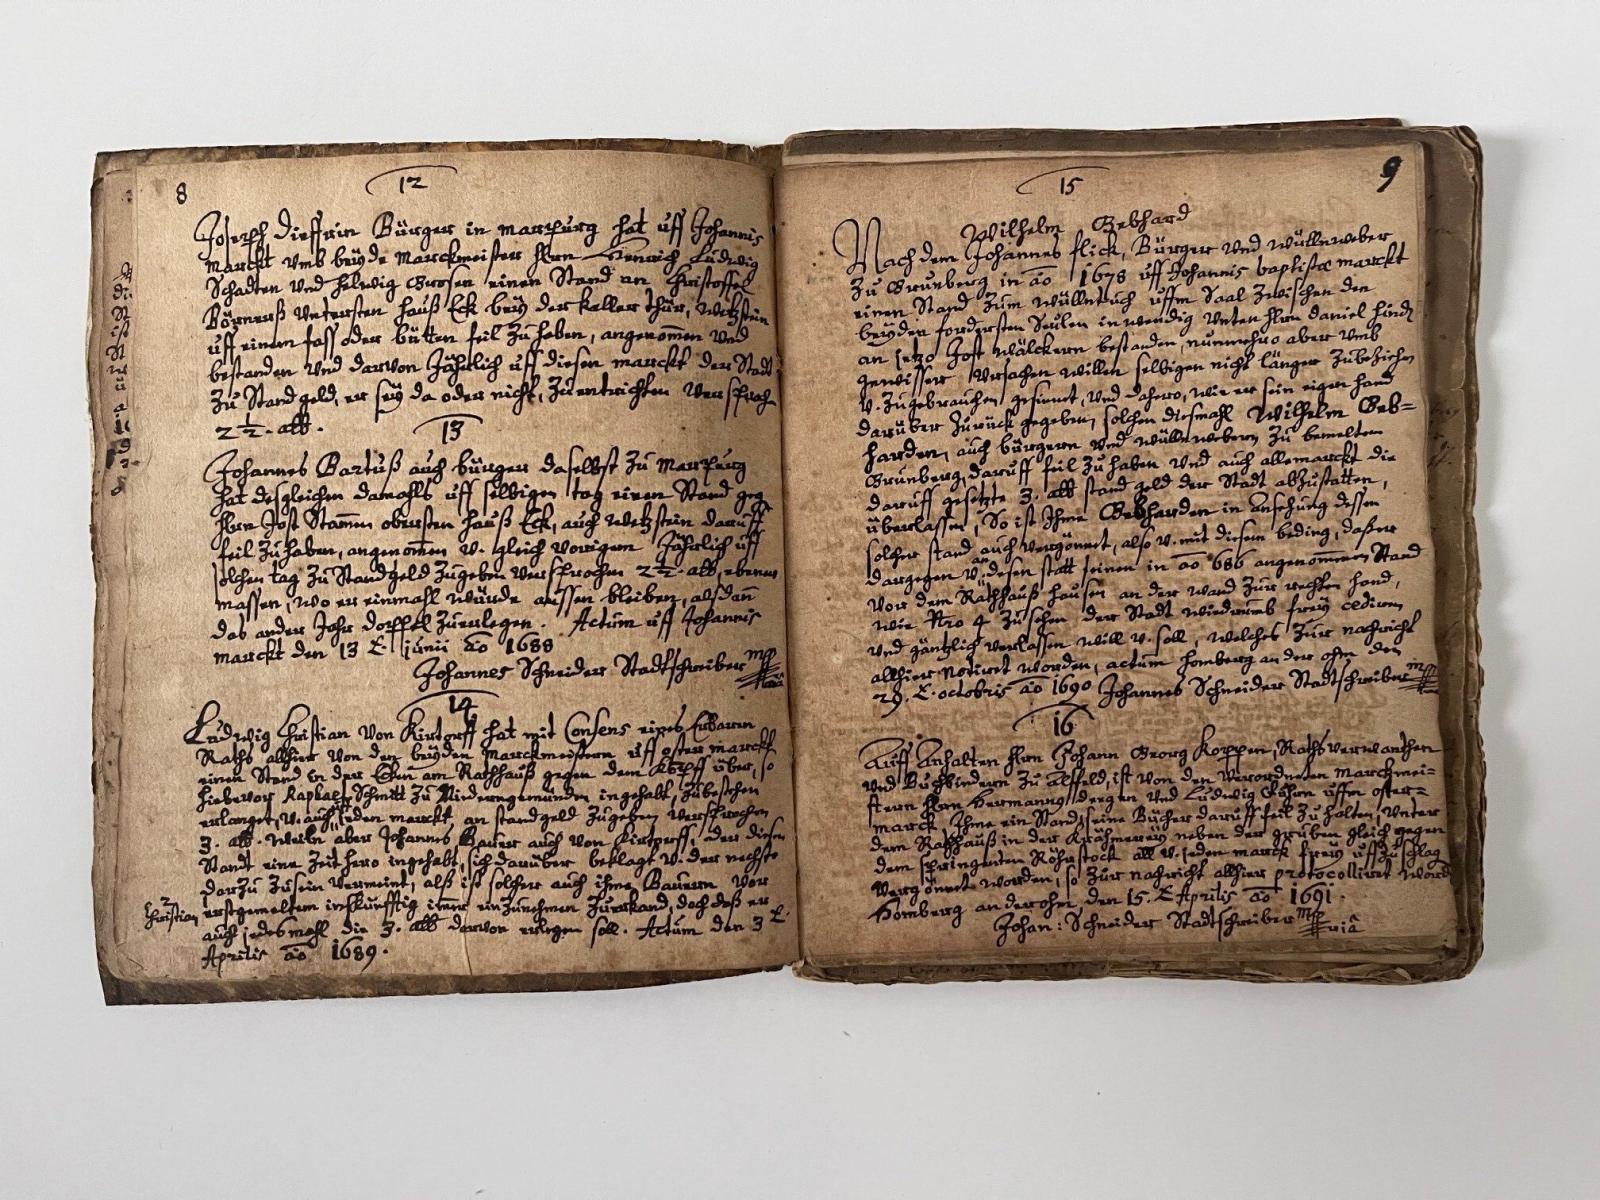 8
12
Joseph Dieffrin Bürger in Marpurg hat uff Johannis
marckt umb beyde Marckmeister Hrn Henrich Ludwig
Schadten und Helwig einen Stand an Christoffel
Börnerß untersten Hauß Eck bey der Keller Thür, Wetzstein
uff einem faß oder bütten feil zu haben, angenom̄en und
bestanden und darvon Jährlich uff diesen marckt der Stadt
zu Standgeld, er sey da oder nicht, zu entrichten versproch
2½. alb.
13
Johannes Bartuß auch bürger daselbst zu Marpurg
hat desgleichen damahls uff selbigen tag einen Stand geg
Hrn Jost Stam̄en obersten Hauß Eck, auch Wetzstein daruff
feil zu haben, angenom̄en v. gleich vorigem Jährlich uff
solchen tag zu Standgeld zugeben versprochen 2½. alb, ebener
massen, wo er einmahl würde aussen bleiben, alsdan̄
das ander Jahr doppel zuerlegen. Actum uff Johannis
marckt den 13 t. Junii ao 1688
Johannes Schneider Stadtschreiber mpp
14
Ludwig Christian von Kirtorff hat mit Consens eines Erbarn
Raths alhier von den beyden Marckmeistern uff oster marckt
einen Stand in der am Rathhauß gegen dem über, so
hiebevor Schmitt zu Niederngemünden ingehabt, zubestehen
erlanget, v. auch jeden marckt an standgeld zugeben versprochen
3. alb. Weiln aber Johannes Bauer auch von Kirtorff, der diesen
Standt eine Zeit hero ingehabt, sich darüber beklagt v. der nechste
darzu zusein vermeint, alß ist solcher auch ihme Bauern vor
Christian
erstgemeltem inskünfftig einzunehmen zuerkand, doch daß er
auch jedesmahl die 3. alb darvon erlegen soll. Actum den 3 t.
Aprilis ao 1689.
9
15
Wilhelm Gebhard
Nach dem Johannes Flick, Bürger und Wüllnweber
zu Grünberg in ao 1678 uff Johannis baptistæ marckt
einen Stand zum Wüllntuch uffm Saal zwischen den
beyden fordersten Seulen inwendig unten Hrn Daniel
an jetzo Jost Wälckern bestanden, nunmehro aber umb
gewisser Ursachen willen selbigen nicht länger zubeziehen
v. zugebrauchen gesinnt, und dahero, wie er sein eigen hand
darüber zurück gegeben, solchen dismahl Wilhelm Geb=
harden, auch bürgern und wüllnwebern zu bemeltem
Grünberg, daruff feil zu haben und auch alle marckt die
daruff gesetzte 3. alb stand geld der Stadt abzustatten,
überlassen, So ist Ihme Gebharden in ansehung dessen
solcher stand auch vergönnet, also v. mit diesem beding, daß er
dargegen v. an dessen statt seinen in ao 686 angenom̄enen Stand
vor dem Rathhauß haussen an der wand zur rechten hand,
wie Nro 4 zusehen der Stadt wiedrumb frey cediren
und gäntzlich verlassen will v. soll, welches zur nachricht
allhier notirt worden, actum Homberg an der Ohm den
29. t. octobris ao 1690 Johannes Schneider Stadtschreiber mpp
16
Auff Anhalten Hrn Johann Georg Koppen, Rathsverwanthen
und Buchbindern zu Alßfeld, ist von den verordneten Marckmei=
stern Hrn Hermanny und Ludwig uffm oster=
marck Ihme ein Stand, seine Bücher daruff feil zu halten, unter
dem Rathhauß in der Krähmerey neben der gruben gleich gegen
dem springenden Röhrstock all v. jeden marck frey uffzuschlag
vergönnet worden, so zur nachricht allhier protocollirt word
Homberg an der ohm, den 15. t Aprilis ao 1691.
Johan: Schneider Stadtschreiber mpp